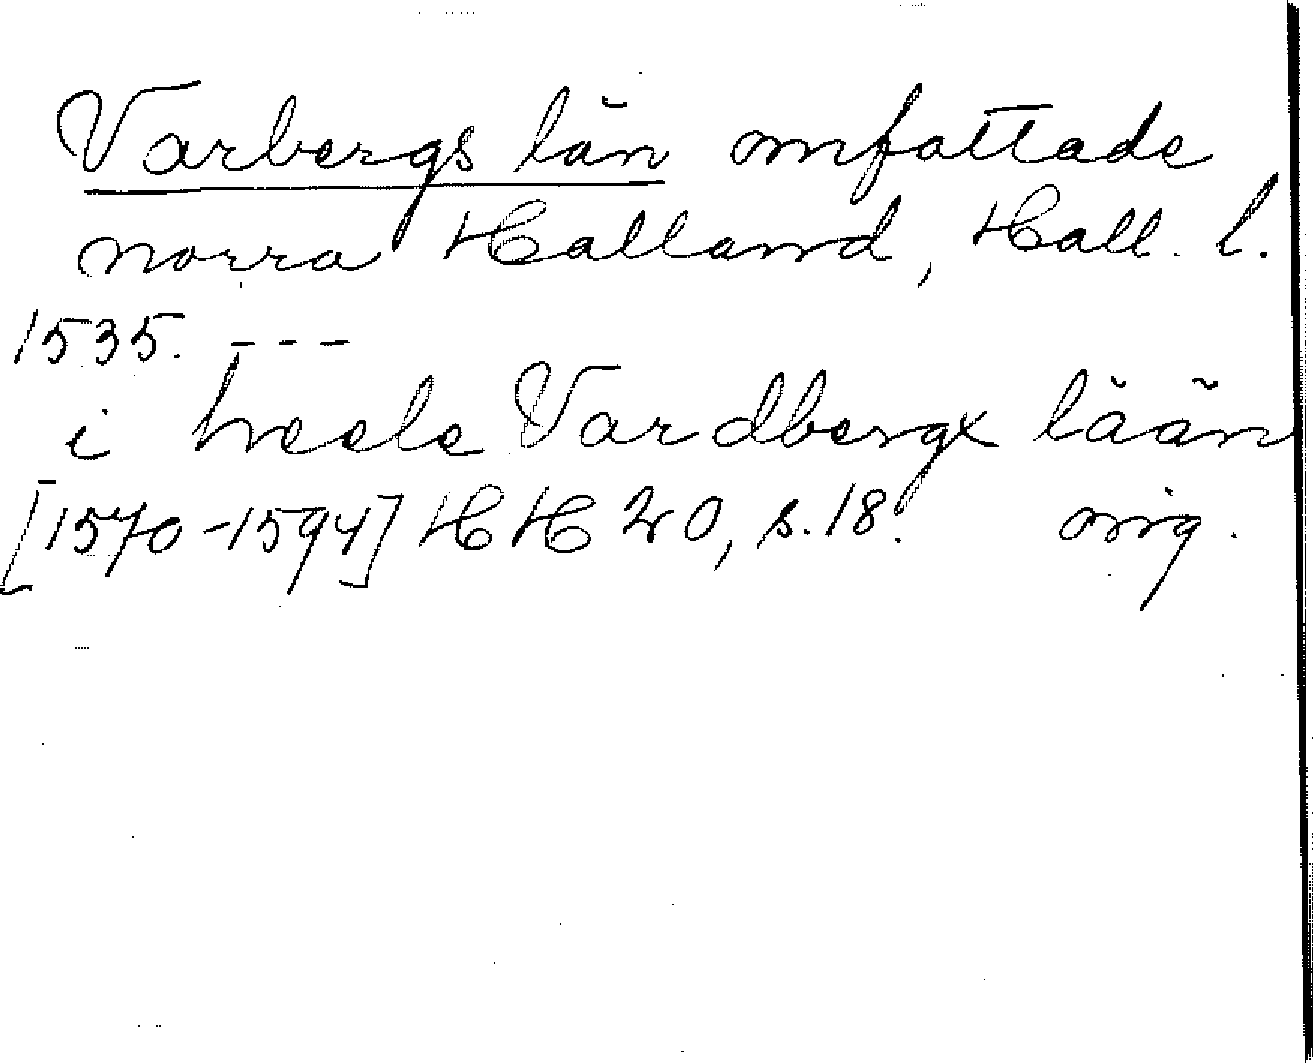 Varbergs län omfattade
norra Halland, Hall. l.
1535. ---
i heele Vardbergx lään
[1570-1594] HH 20, s. 18. orig.